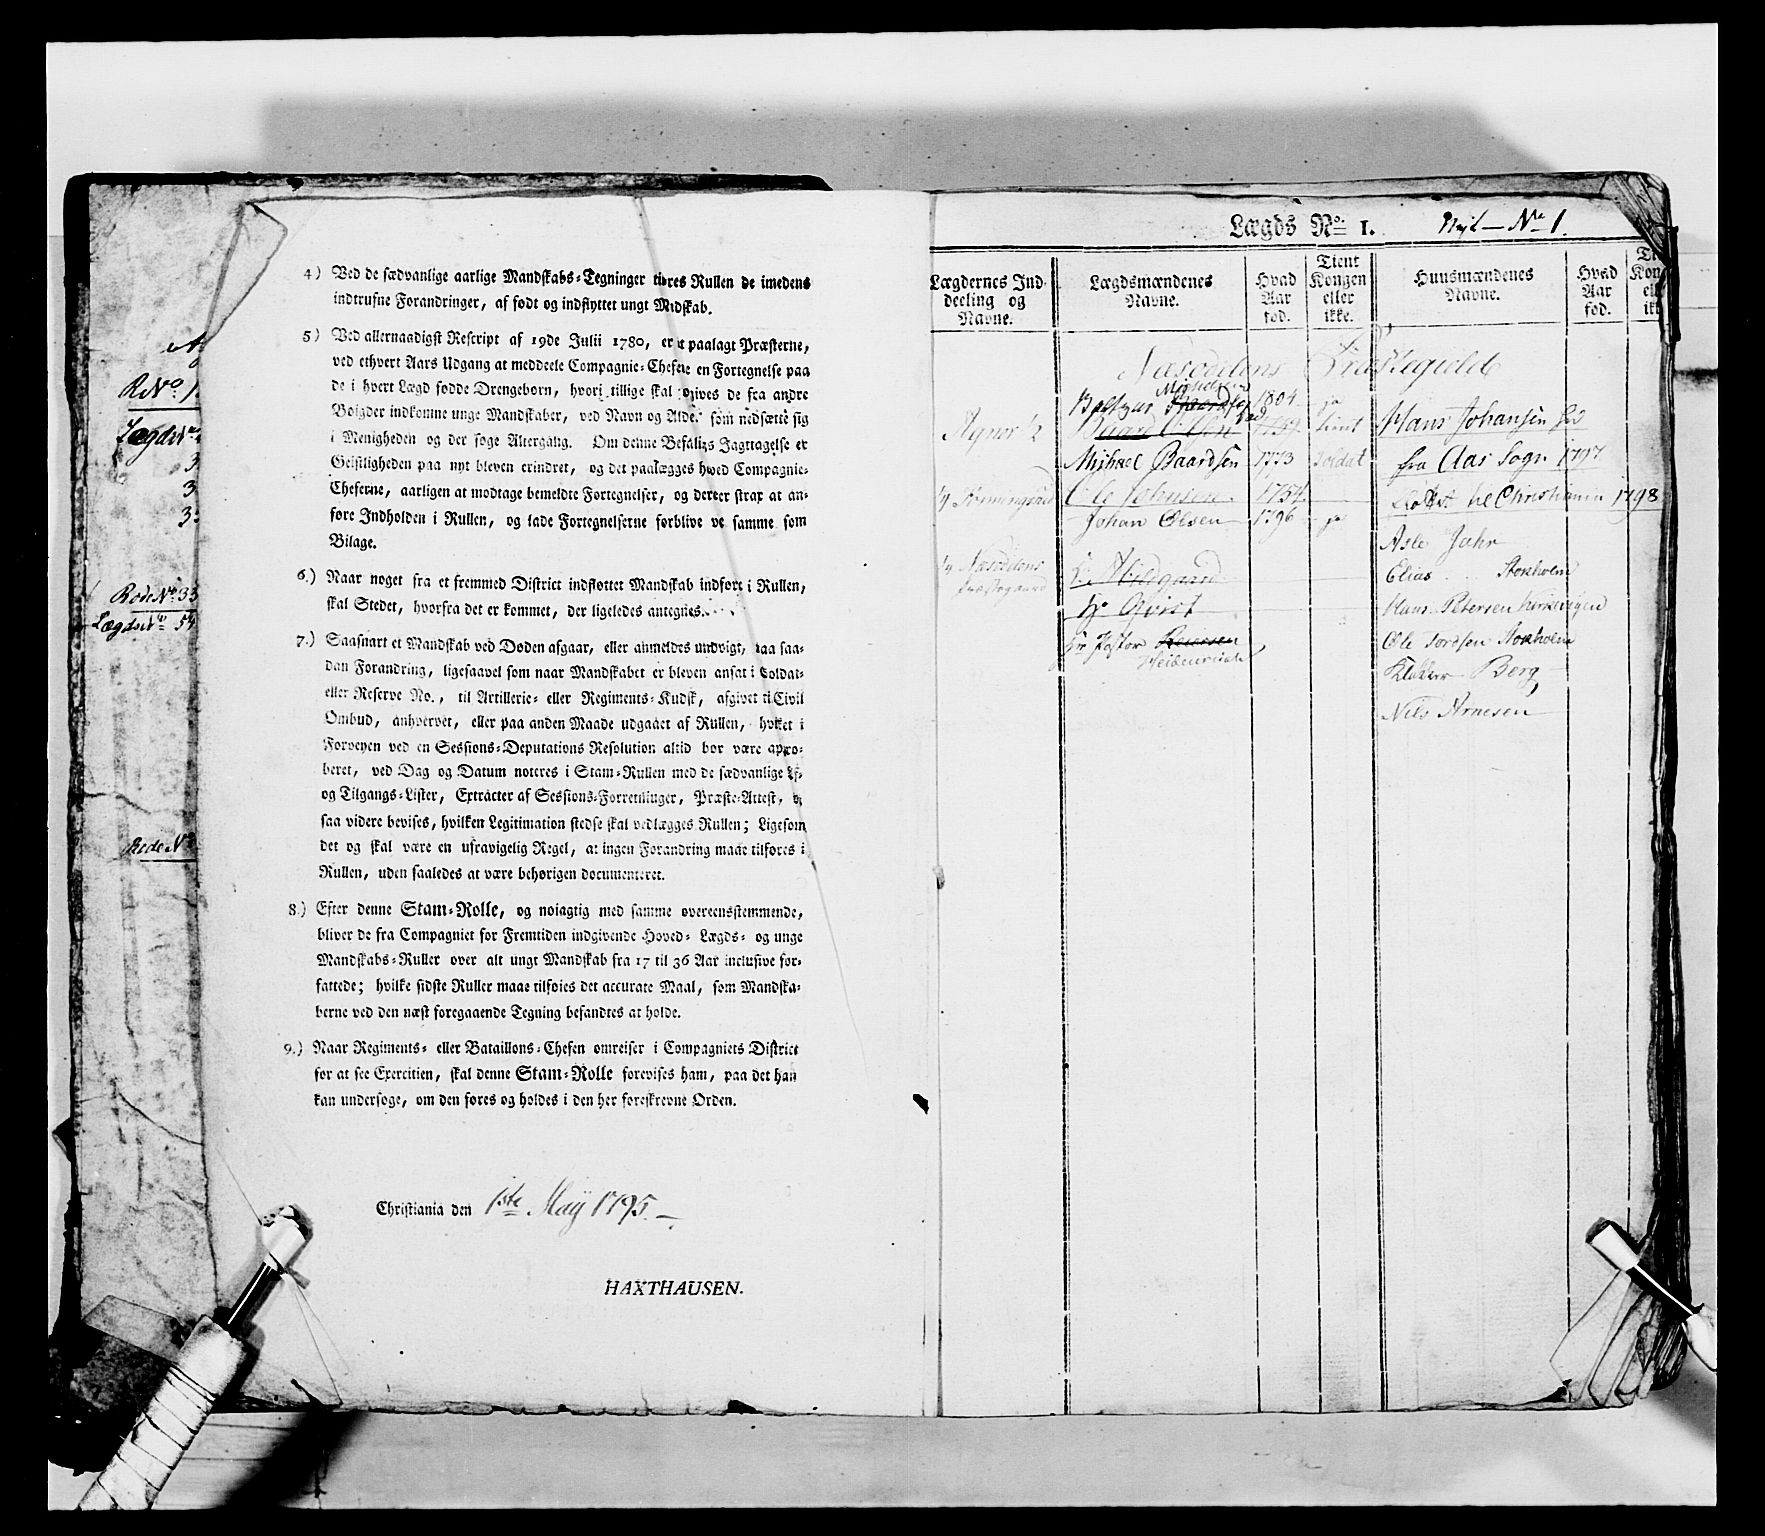 R№ 1.
Lægds№
3
3
3.
Rode№ 33
Lægds№ 54
Rode№
4) Ved de sædvanlige aarlige Mandskabs-Tegninger tilføres Rullen de imedens
indtrufne Forandringer, af født og indflyttet ungt Mdskab.
5) Ved allernaadigst Rescript af 19de Julii 1780, er et paalagt Præsterne,
ved ethvert Aars Udgang at meddeele Compagnie-Chefene en Fortegnelse paa
de i hvert Lægd fødde Drengebørn, hvori tillige skal opgives de fra andre
Boigder indkomne unge Mandskaber, ved Navn og Alder som nedsætte sig
i Menigheden og der søge Altergang. Om denne Befalings Jagttagelse er
Geistligheden paa nyt bleven erindret, og det paalægges hved Compagnie-
Cheferne, aarligen at modtage bemeldte Fortegnelser, og derefter strax at an-
føre Indholden i Rullen, og lade Fortegnelserne forblive ved samme som
Bilage.
6.) Naar noget fra et fremmed District indflottet Mandskab indført i Rullen,
skal Stedet, hvorfra det er kommet, der ligeledes antegnes.
7.) Saasnart et Mandskab ved Døden afgaar, eller anmeldes undvigt, saa saa-
dan Forandring, ligesaavel som naar Mandskabet er bleven ansat i Soldat-
eller Reserve No., til Artillerie- eller Regiments-Kudsk, afgivet til Civil
Ombud, anhvervet, eller paa anden Maade udgaaet af Rullen, hvilket i
Forveyen ved en Sessions-Deputations Resolution altid bør være appro-
beret, ved Dag og Datum noteres i Stam-Rullen med de sædvanlige Af-
og Tilgangs-Lister, Extracter af Sessions-Forretninger, Præste-Attest, og
saa videre bevises, hvilken Legitimation stedse skal vedlægges Rullen; Ligesom
det og skal være en ufravigelig Regel, at ingen Forandring maae tilføres i
Rullen, uden saaledes at være behørigen documenteret.
8.) Efter denne Stam-Rolle, og noiagtig med samme overeensstemmende,
bliver de fra Compagniet for Fremtiden indgivende Hoved- Lægds- og unge
Mandskabs-Ruller over alt ungt Mandskab fra 17 til 36 Aar inclusive for-
fattede; hvilke sidste Ruller maae tilføies det accurate Maal, som Mandska-
berne ved den næst foregaaende Tegning befandtes at holde.
9.) Naar Regiments- eller Bataillons-Chefen omreiser i Compagniets District
for at see Exercitien, skal denne Stam-Rolle forevises ham, paa det han
kan undersøge, om den føres og holdes i den her foreskrevne Orden.
Christiania den 1ste Maÿ 1795.
HAXTHAUSEN.
Lægds No. 1. Nyt— No 1.
Lægdernes Ind-
deeling og
Navne.
Lægdsmændenes
Navne.
Hvad
Aar
fød.
Tient
Kongen
eller
ikke.
Huusmændenes
Navne.
Hvad
Aar
fød.
Næsoddens Præstegield
Baltzar Michelsen 1804 ja
Agnor ½ Baard Olsen tient Hans Johansen
Mighael Baardsen 1773 Soldat fra Aas Sogn 1797
Ole Johnsen 1754 til Christiania 1798
Johan Olsen 1796 ja
Asle Jahr
¼ Næsoddens Præstegaard Hr. Abildgaard
Elias Storholm
Hr Qvist
Hans Petersen
Hr Pastor
Ole Tordsen Storholm
Klokker Berg
Nils Arnesen